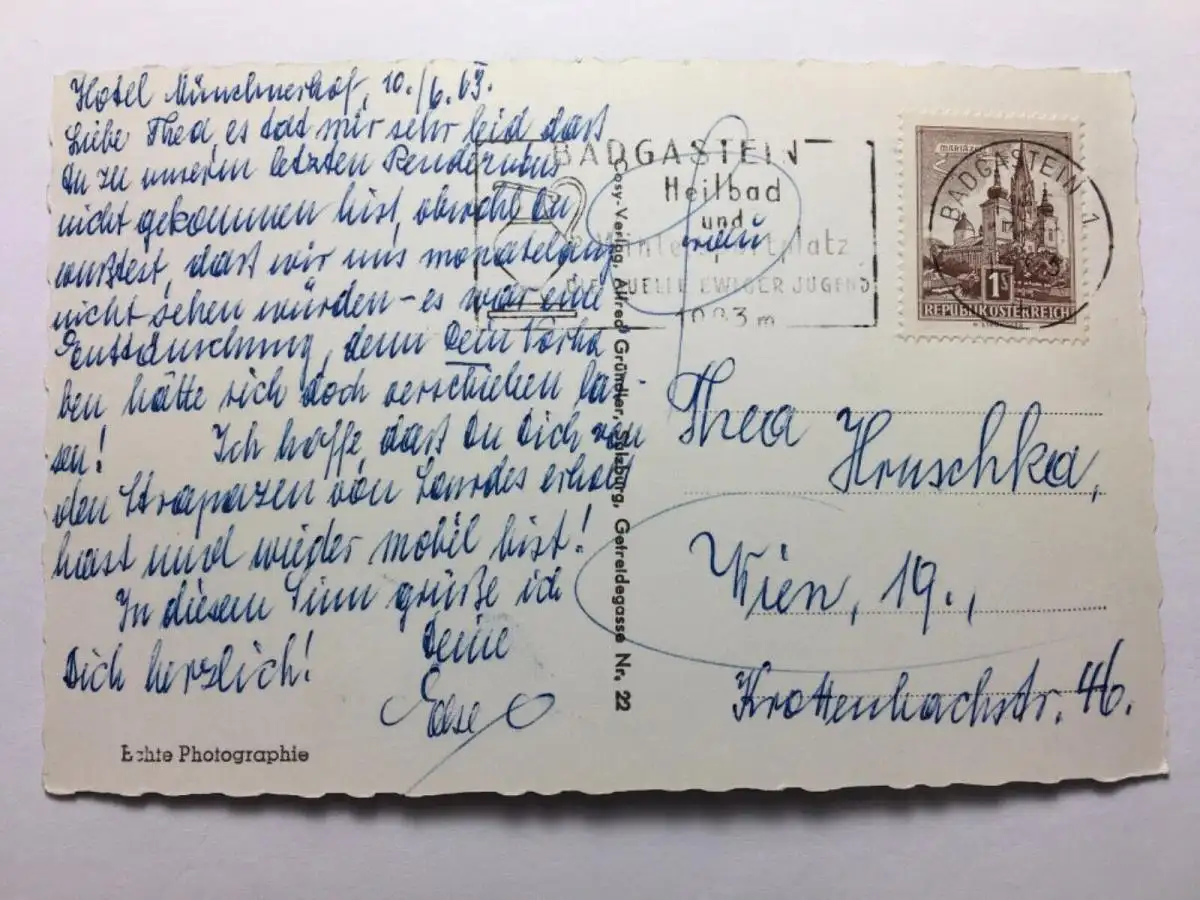 Hotel Münchnerhof, 10./6. 63.
Liebe Thea, es tat mir sehr leid daß
Du zu unserm letzten Rendezvous
nicht gekommen bist, obwohl Du
wußtest, daß wir uns monatelang
nicht sehen würden - es war eine
Enttäuschung, denn Dein Vorha
ben hätte sich doch verschieben las-
sen! Ich hoffe, daß Du Dich von
den Strapazen von Lourdes erholt
hast und wieder mobil bist!
In diesem Sinn grüße ich
Dich herzlich! Deine
Else
Echte Photographie
Cosy-Verlag, Alfred Gründler, Salzburg, Getreidegasse Nr. 22
BADGASTEIN
Heilbad
und
Wintersportplatz
DIE QUELLE EWIGER JUGEND
1083 m
BADGASTEIN 1
MARIAZELL
1S
REPUBLIK ÖSTERREICH
Frau
Thea Hruschka,
Wien, 19.,
Krottenbachstr. 46.